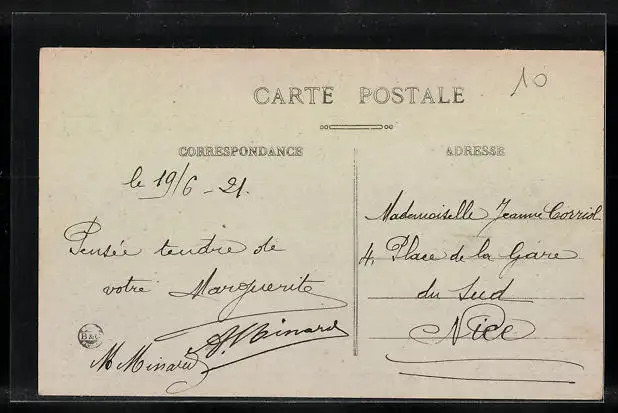 10
CARTE POSTALE
CORRESPONDANCE
ADRESSE
le 19/6 - 21.
Pensée tendre de
votre Marguerite
Minard
M Minard
B & G
Mademoiselle Jeanne Corriol
4, Place de la Gare
du Sud
Nice